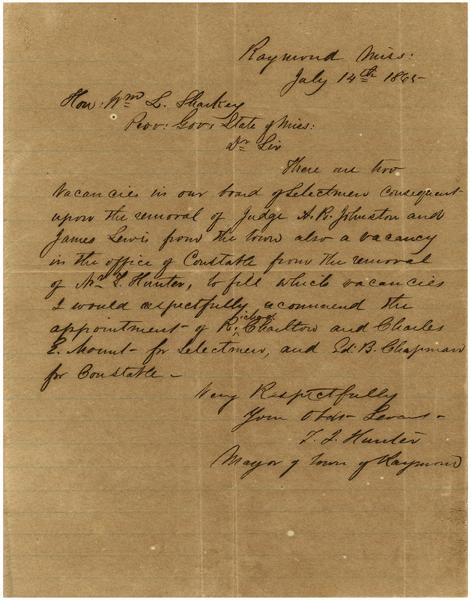 Raymond Miss:
July 14th 1865
Hon: Wm L. Sharkey
Prov: Gov: State of Miss:
Dr Sir
There are two
vacancies in our board of Selectmen consequent
upon the removal of Judge A. R. Johnston and
James Lewis from the town also a vacancy
in the office of Constable from the removal
of Hunter, to fill which vacancies
I would respectfully recommend the
appointment of Richard Charlton and Charles
E. Mount for Selectmen, and Ed: B. Chapman
for Constable –
Very Respectfully
Your Obdt Servt –
T. J. Hunter
Mayor of town of Raymond